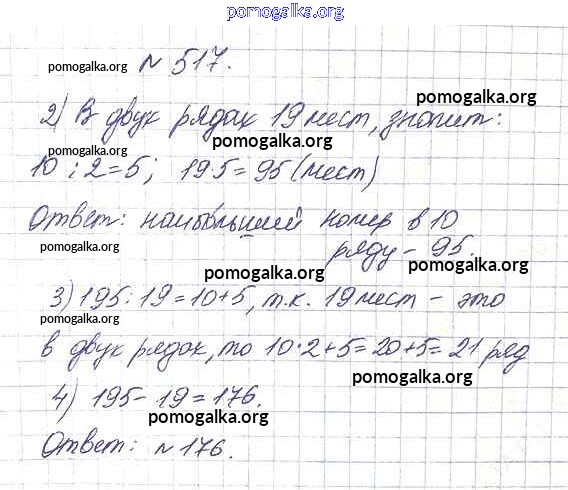 pomogalka.org
pomogalka.org № 517.
pomogalka.org
2) В двух рядах 19 мест, значит:
pomogalka.org pomogalka.org
10 : 2 = 5; 19·5 = 95 (мест)
pomogalka.org
Ответ: наибольший номер в 10
ряду – 95.
pomogalka.org pomogalka.org pomogalka.org
3) 195 : 19 = 10 + 5, т.к. 19 мест – это
pomogalka.org pomogalka.org
в двух рядах, то 10·2+5=20+5=21 ряд
pomogalka.org
4) 195 – 19 = 176.
pomogalka.org pomogalka.org
Ответ: № 176.